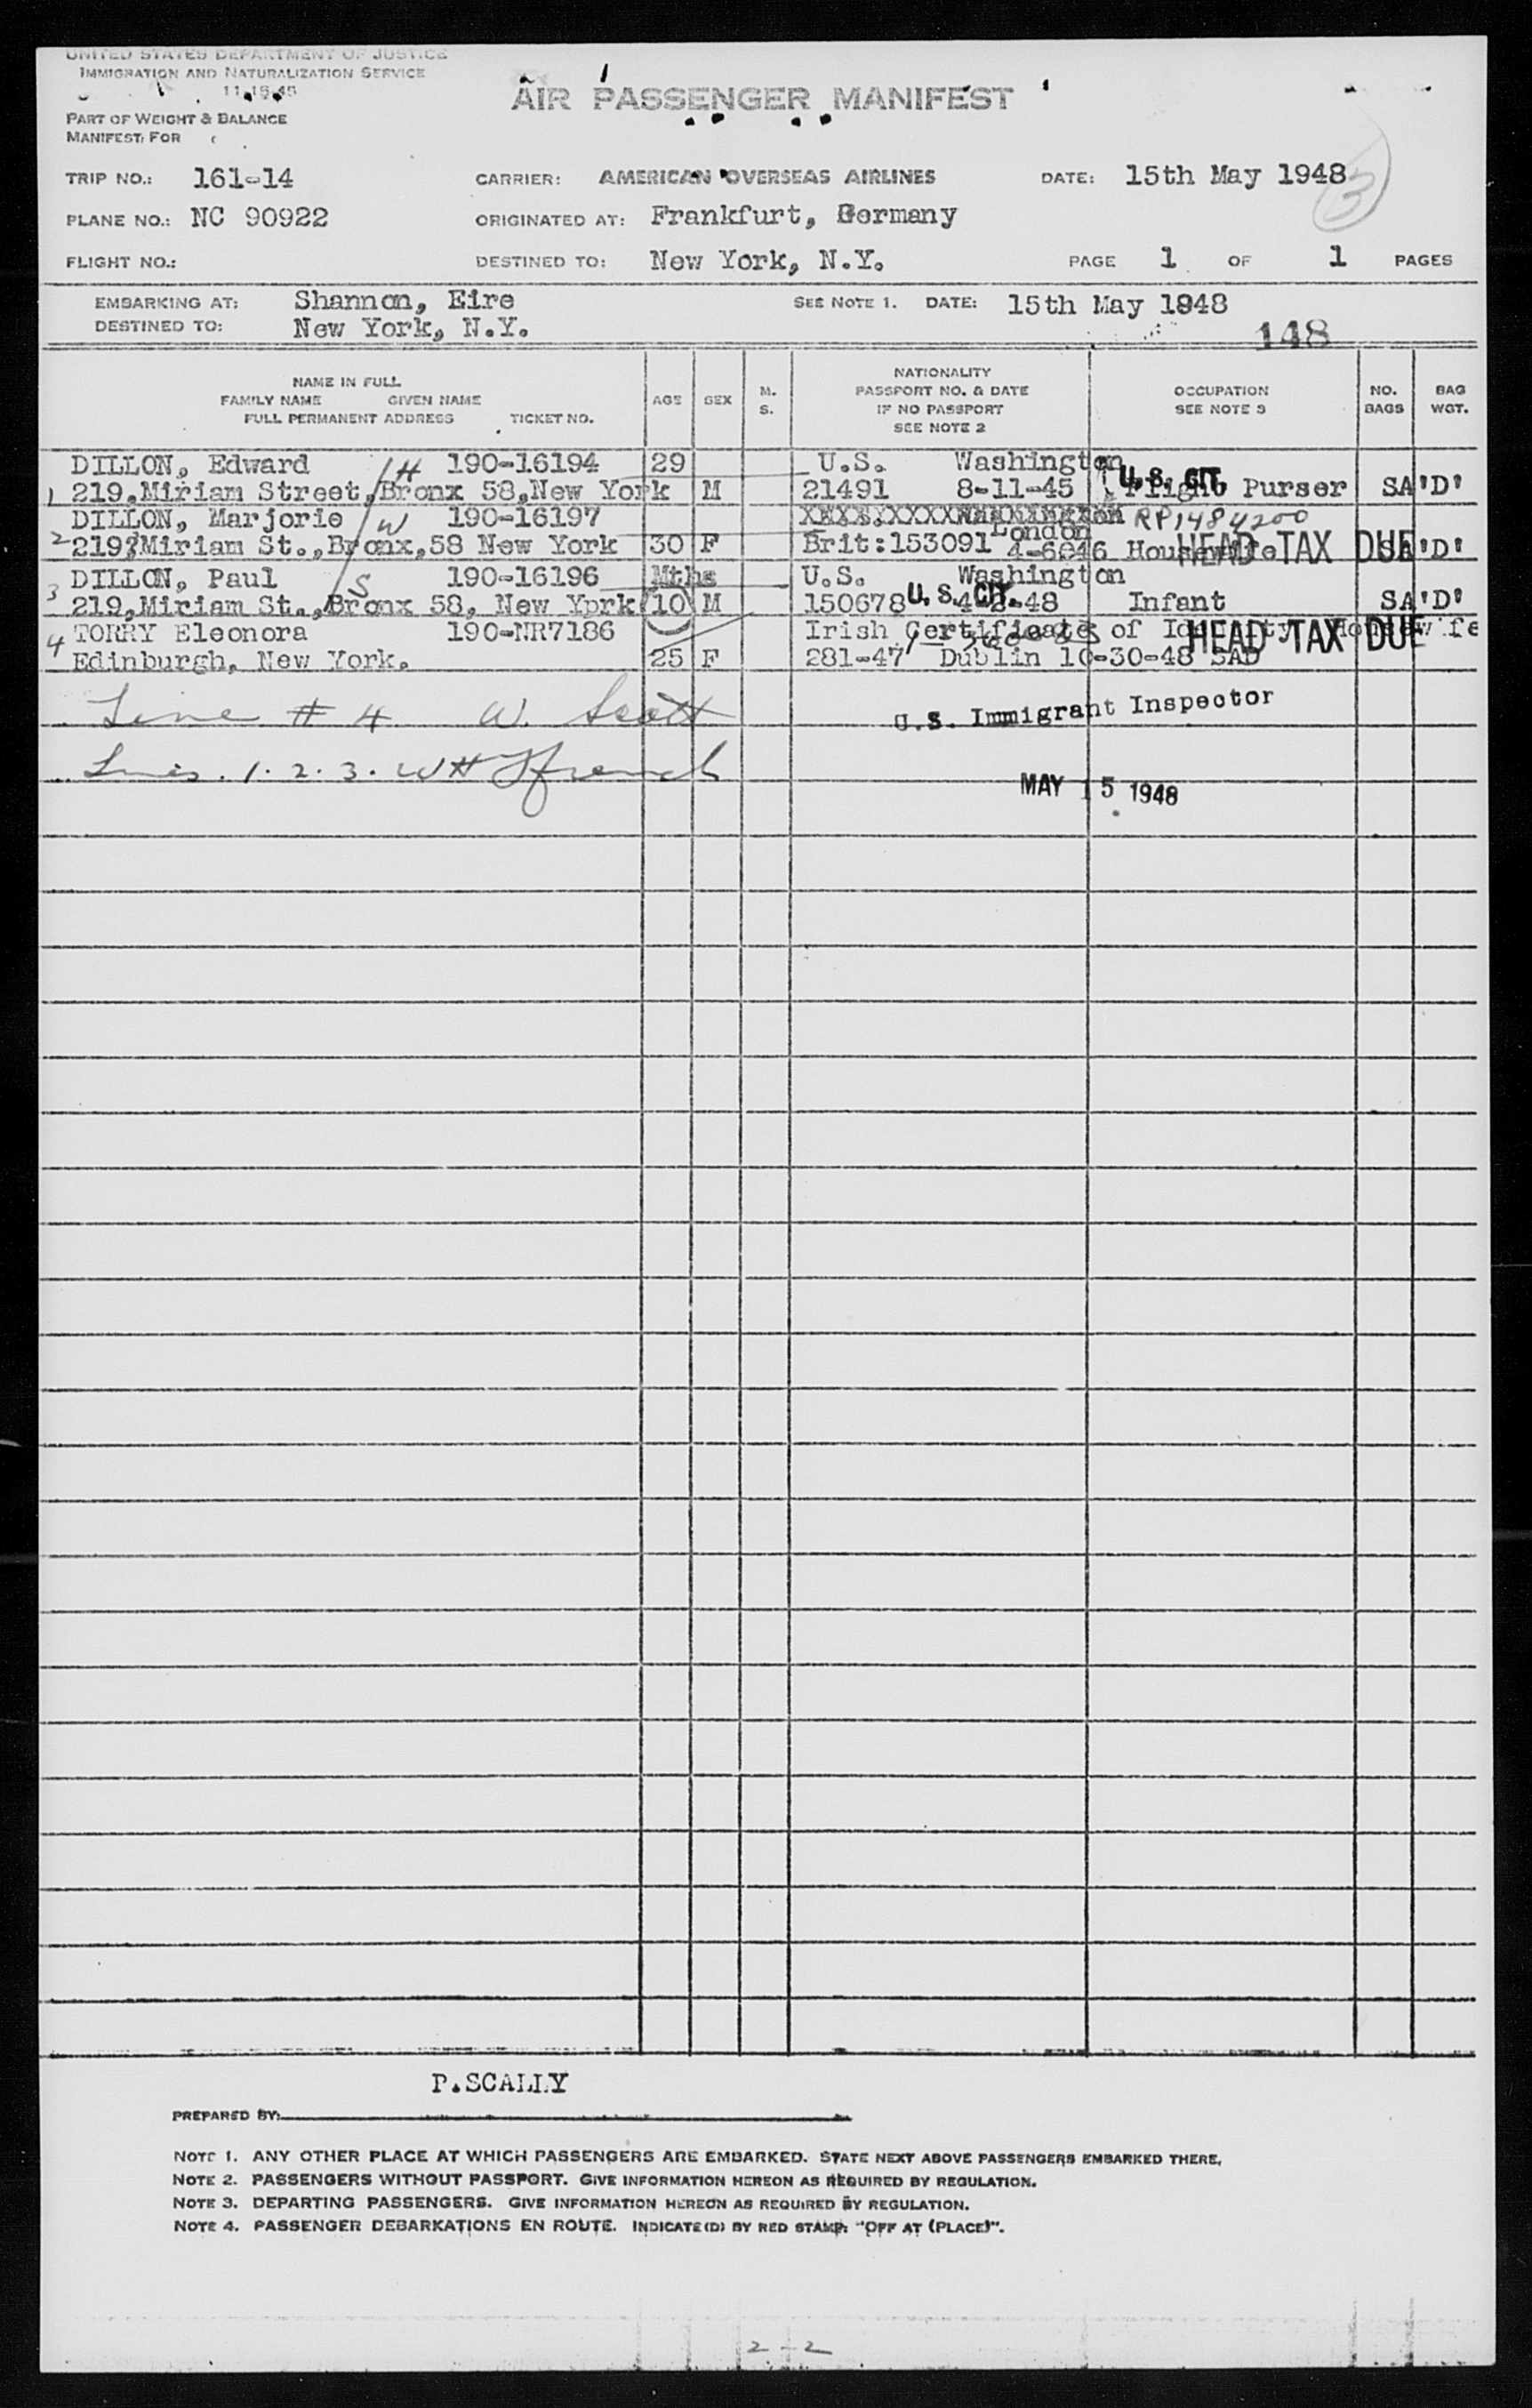 UNITED STATES DEPARTMENT OF JUSTICE
IMMIGRATION AND NATURALIZATION SERVICE
11-15-45
AIR PASSENGER MANIFEST
PART OF WEIGHT & BALANCE
MANIFEST: FOR
TRIP NO.: 161-14 CARRIER: AMERICAN OVERSEAS AIRLINES DATE: 15th May 1948
3
PLANE NO.: NC 90922 ORIGINATED AT: Frankfurt, Germany
FLIGHT NO.: DESTINED TO: New York, N.Y. PAGE 1 OF 1 PAGES
EMBARKING AT: Shannon, Eire SEE NOTE 1. DATE: 15th May 1948
DESTINED TO: New York, N.Y.
148
NAME IN FULL
FAMILY NAME GIVEN NAME
FULL PERMANENT ADDRESS TICKET NO.
AGE
SEX
M.
S.
NATIONALITY
PASSPORT NO. & DATE
IF NO PASSPORT
SEE NOTE 2
OCCUPATION
SEE NOTE 3
NO.
BAGS
BAG
WGT.
DILLON, Edward H 190-16194 29 U.S. Washington U.S. CIT.
1 219,Miriam Street,Bronx 58,New York M 21491 8-11-45 Flight Purser SA'D'
DILLON, Marjorie W 190-16197 London RP1484200
2 219,Miriam St.,Bronx,58 New York 30 F Brit:153091 4-6-46 Housewife HEAD TAX DUE SA'D'
DILLON, Paul S 190-16196 Mths U.S. Washington
3 219,Miriam St.,Bronx 58, New Yprk 10 M 150678 U.S. CIT. 4-2-48 Infant SA'D'
4 TORRY Eleonora 190-NR7186 Irish Certificate of Identity Housewife HEAD TAX DUE
Edinburgh, New York. 25 F 281-47 Dublin 10-30-48 SAD
Line # 4 W. Scott
U.S. Immigrant Inspector
Lines. 1. 2. 3. WH
MAY 15 1948
P.SCALLY
PREPARED BY:
NOTE 1. ANY OTHER PLACE AT WHICH PASSENGERS ARE EMBARKED. STATE NEXT ABOVE PASSENGERS EMBARKED THERE.
NOTE 2. PASSENGERS WITHOUT PASSPORT. GIVE INFORMATION HEREON AS REQUIRED BY REGULATION.
NOTE 3. DEPARTING PASSENGERS. GIVE INFORMATION HEREON AS REQUIRED BY REGULATION.
NOTE 4. PASSENGER DEBARKATIONS EN ROUTE. INDICATE(D) BY RED STAMP: "OFF AT (PLACE)".
2-2